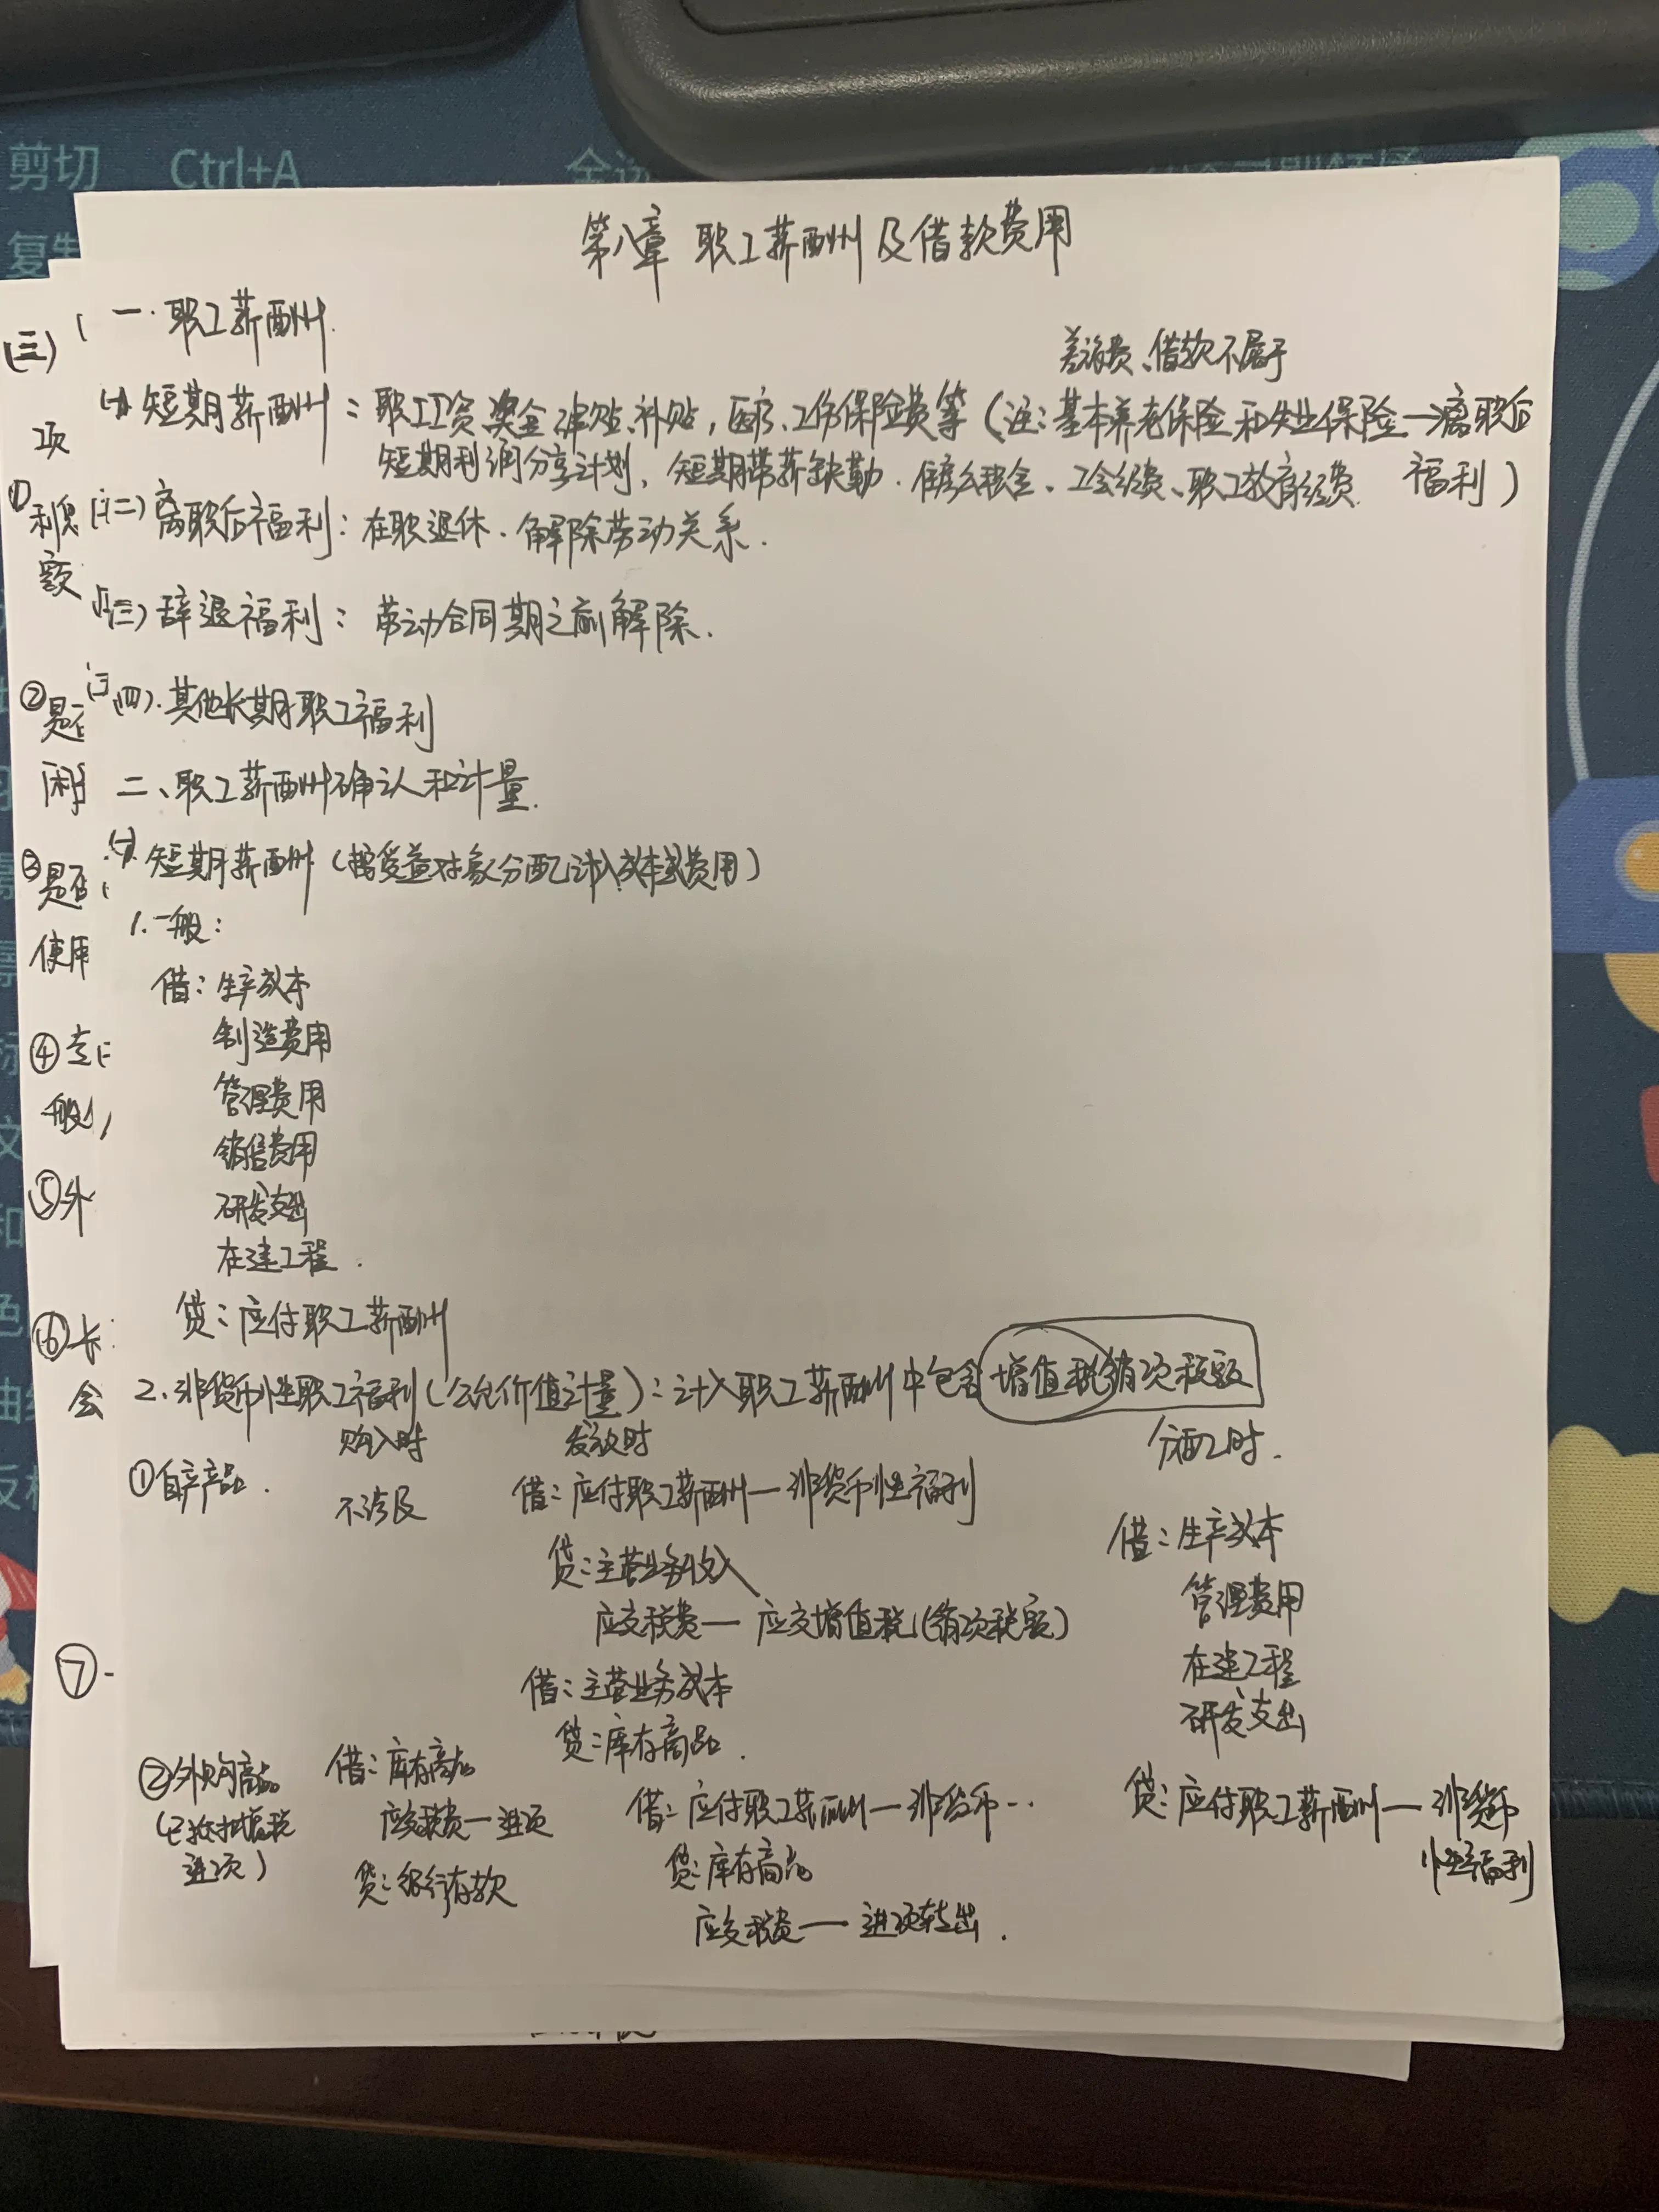 剪切 Ctrl+A
第八章 职工薪酬及借款费用
一.职工薪酬.
差旅费、借款不属于
(一) 短期薪酬：职工工资、奖金、津贴、补贴，医疗、工伤保险费等（注：基本养老保险和失业保险→离职后
短期利润分享计划、短期带薪缺勤、住房公积金、工会经费、职工教育经费. 福利）
(二) 离职后福利：在职退休、解除劳动关系.
(三) 辞退福利：劳动合同期之前解除.
(四). 其他长期职工福利
二、职工薪酬确认和计量.
(一). 短期薪酬（按受益对象分配计入成本或费用）
1. 一般：
借：生产成本
制造费用
管理费用
销售费用
研发支出
在建工程.
贷：应付职工薪酬
2. 非货币性职工福利（公允价值计量）：计入职工薪酬中包含增值税销项税额
购入时 发放时 分配时.
①自产产品. 不涉及 借：应付职工薪酬—非货币性福利
贷：主营业务收入
应交税费—应交增值税(销项税额)
借：主营业务成本
贷：库存商品.
借：生产成本
管理费用
在建工程
研发支出
贷：应付职工薪酬—非货币
性福利
②外购商品
(已抵扣增税
进项)
借：库存商品
应交税费—进项
贷：银行存款
借：应付职工薪酬—非货币…
贷：库存商品
应交税费—进项转出.
(三)
项
①
利息
额
②是否
闲
③是否
使用
④
般
⑤外
⑥长
会
⑦